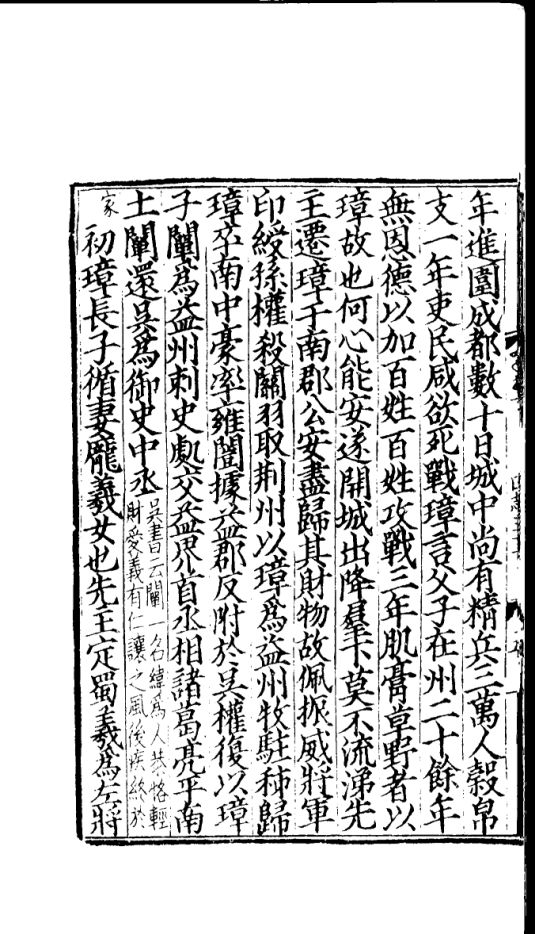 年進圍成都數十日城中尚有精兵三萬人穀帛
支一年吏民咸欲死戰璋言父子在州二十餘年
無恩德以加百姓百姓攻戰三年肌膏草野者以
璋故也何心能安遂開城出降羣下莫不流涕先
主遷璋于南郡公安盡歸其財物故佩振威將軍
印綬孫權殺關羽取荆州以璋爲益州牧駐秭歸
璋卒南中豪率雍闓據益郡反附於吳權復以璋
子闡爲益州刺史處交益界首丞相諸葛亮平南
土闡還吳爲御史中丞吳書云闡一名緯爲人恭恪輕
財愛義有仁讓之風後疾終於
家初璋長子循妻龐羲女也先主定蜀羲爲左將